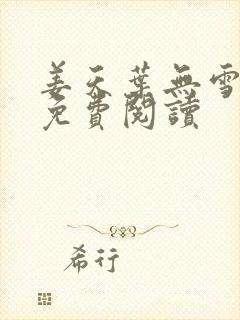 姜天葉無雪
免費閱讀
希行